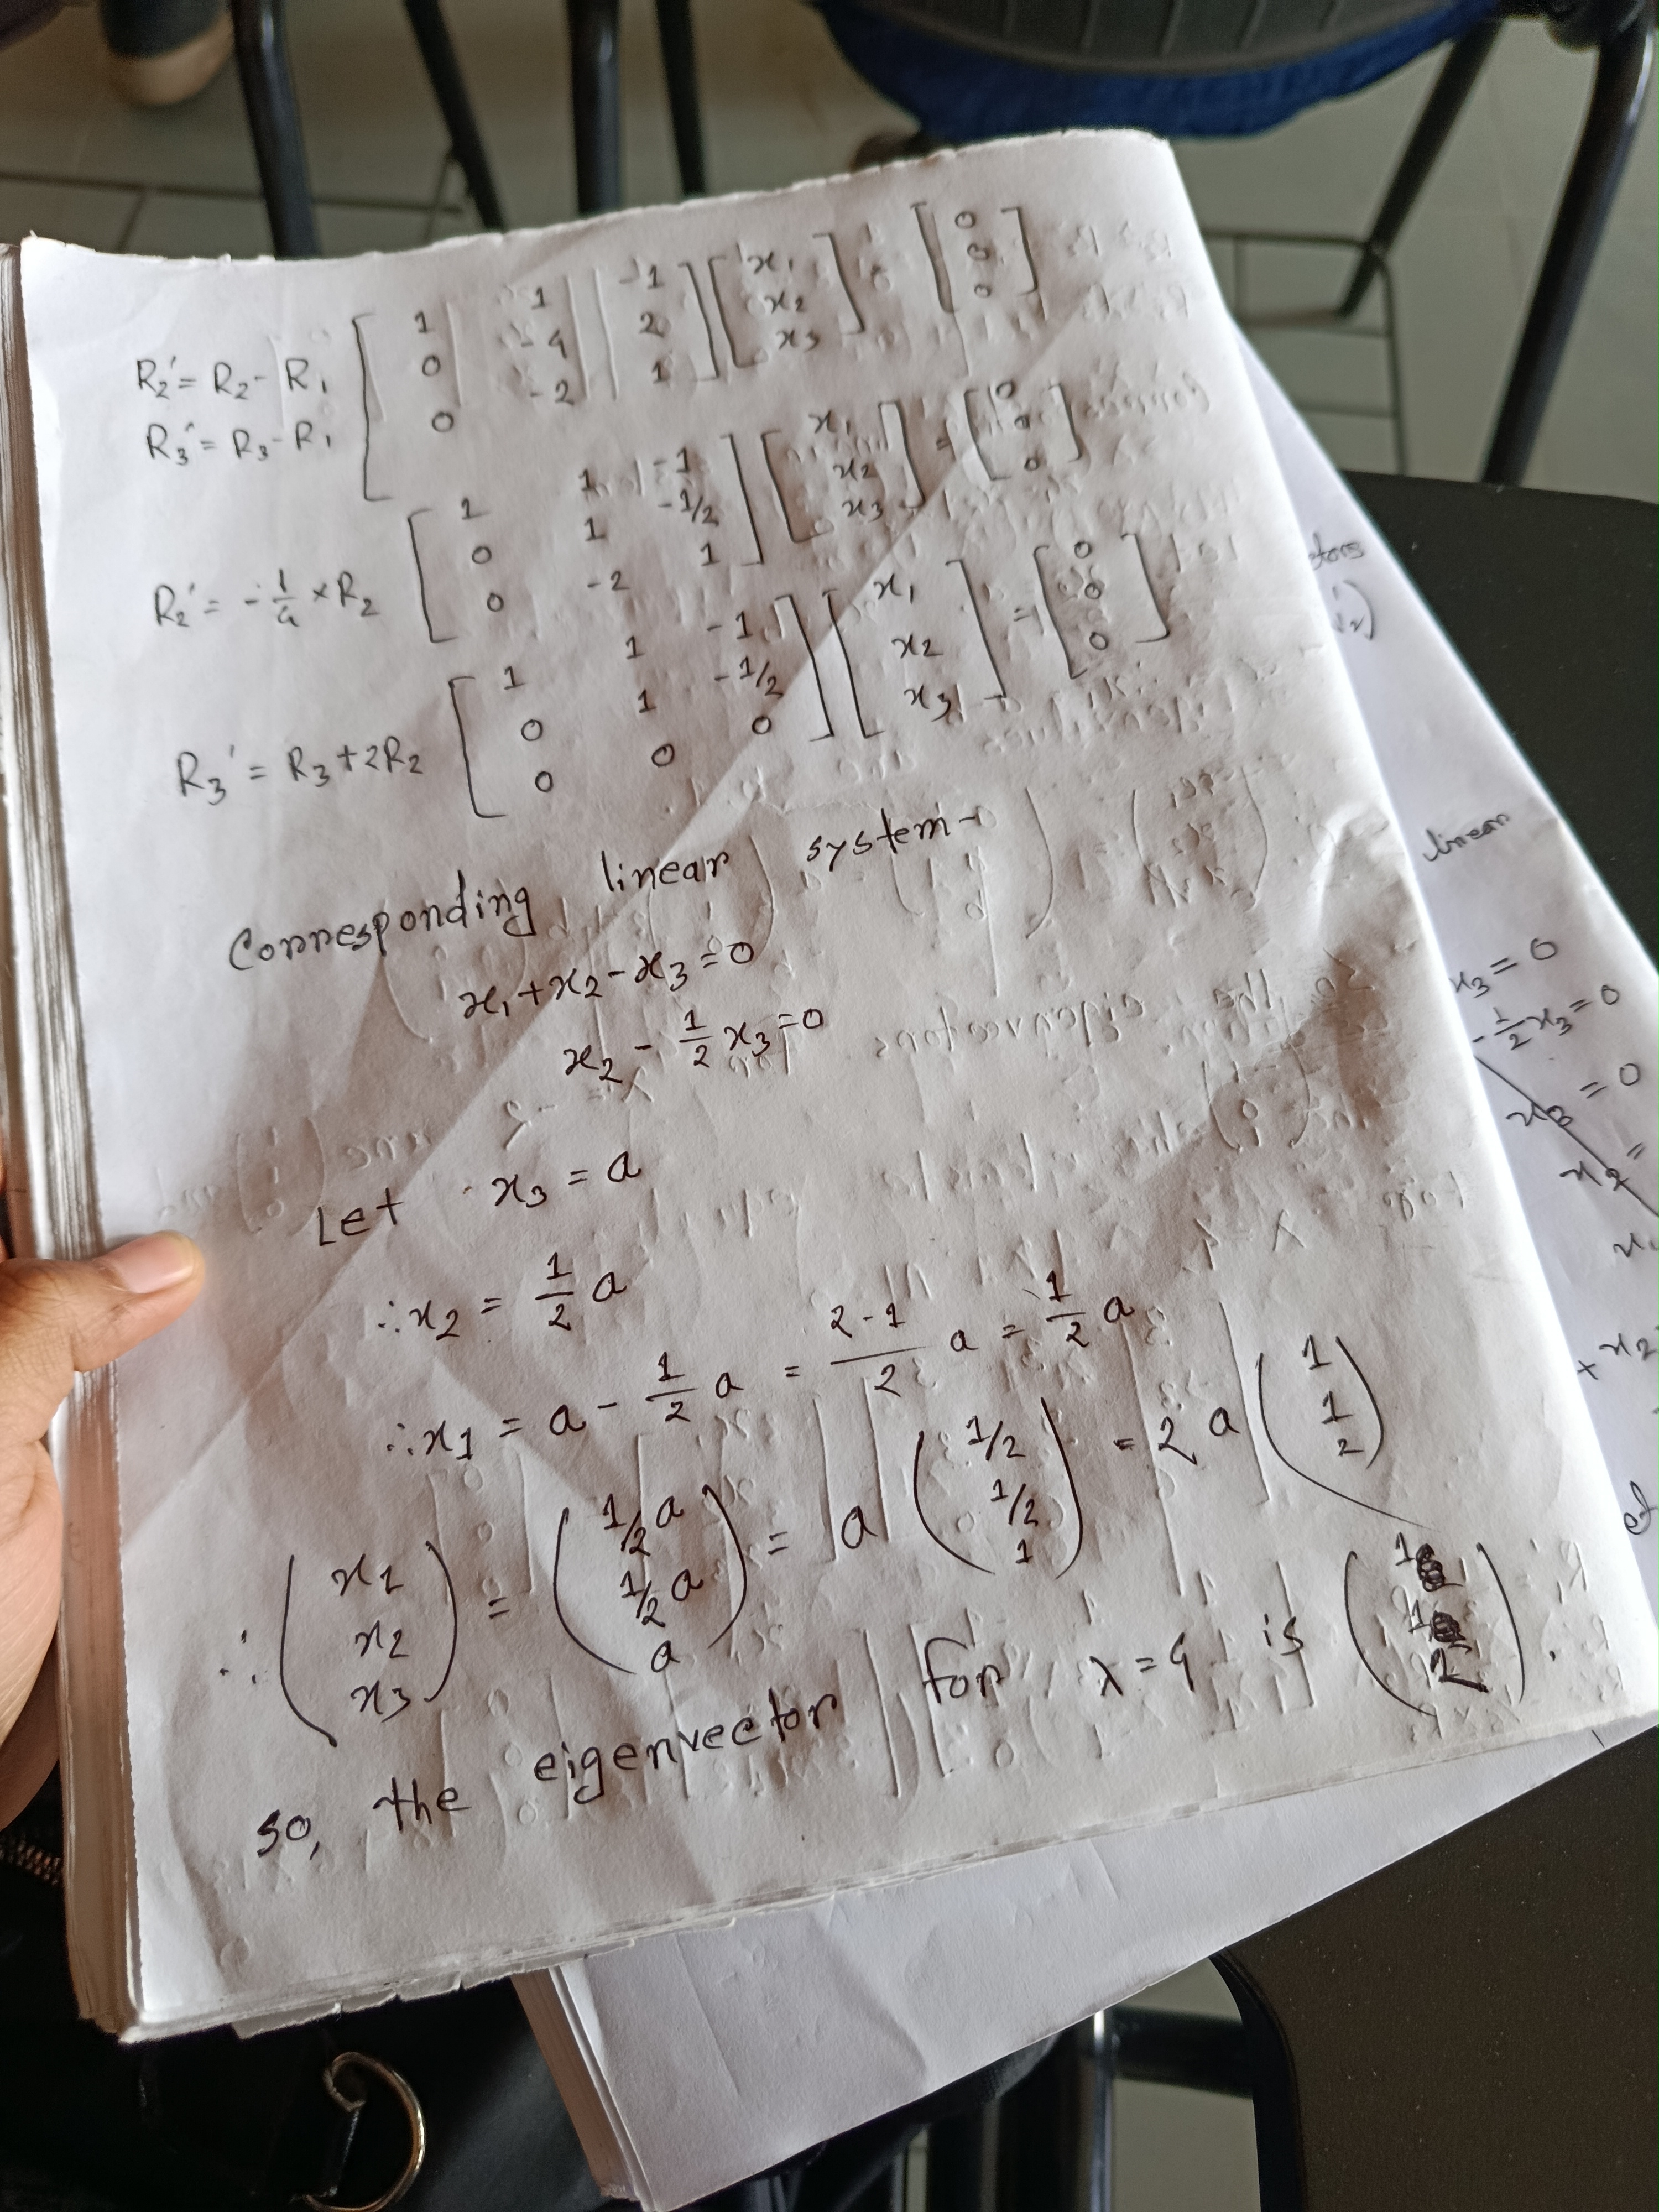 R₂' = R₂ - R₁
R₃' = R₃ - R₁
[1 1 -1
0 -4 2
0 -2 1] [x₁
x₂
x₃] [0
0
0]
R₂' = -1/4 × R₂
[1 1 -1
0 1 -1/2
0 -2 1] [x₁
x₂
x₃] = [0
0
0]
R₃' = R₃ + 2R₂
[1 1 -1
0 1 -1/2
0 0 0] [x₁
x₂
x₃] = [0
0
0]
Corresponding linear system -
x₁ + x₂ - x₃ = 0
x₂ - 1/2 x₃ = 0
Let x₃ = a
∴ x₂ = 1/2 a
∴ x₁ = a - 1/2 a = 2-1/2 a = 1/2 a
∴ (x₁
x₂
x₃) = (1/2 a
1/2 a
a) = a (1/2
1/2
1) = 2 a (1
1
2)
so, the eigenvector for λ = 4 is (1
1
2).
linear
x₃ = 0
- 1/2 x₃ = 0
x₃ = 0
x₂ =
+ x₂